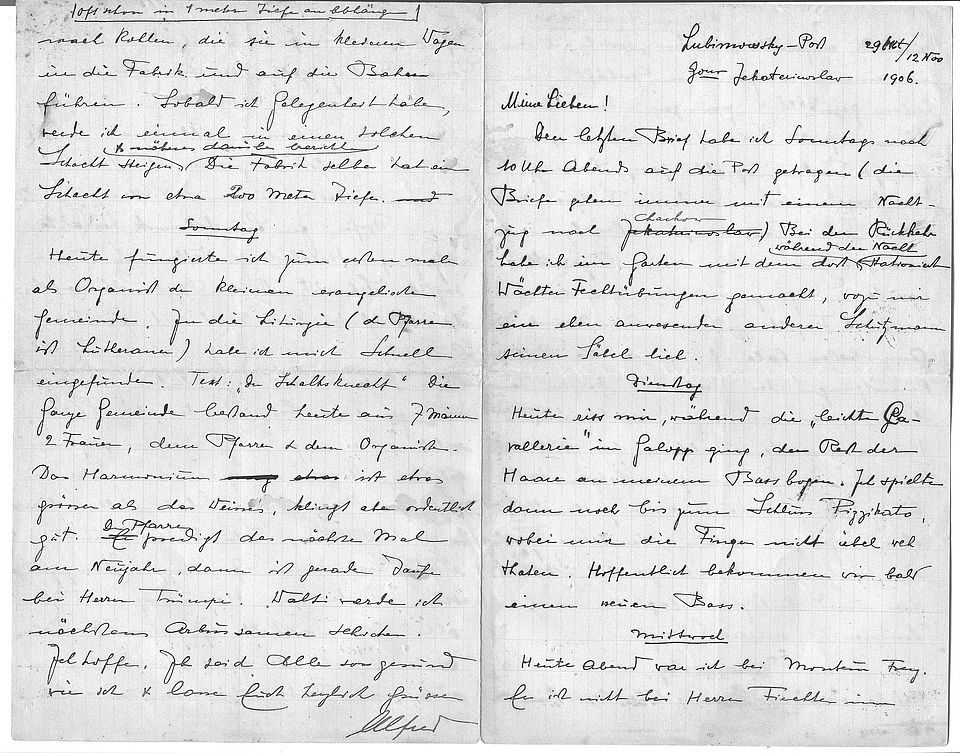 (oft schon in 1 meter Tiefe
nach Kohlen, die sie in kleinen Wagen
in die Fabrik und auf die Bahn
führen. Sobald ich Gelegenheit habe,
werde ich einmal in einen solchen
& näheres darüber berichten
Schacht steigen. Die Fabrik selber hat ein
Schacht von etwa 200 Meter Tiefe. und
Sonntag
Heute fungierte ich zum ersten mal
als Organist der kleinen evangelischen
Gemeinde. In die Liturgie (der Pfarrer
ist Lutheraner) habe ich mich schnell
eingefunden. Text: "Der Schalksknecht" Die
ganze Gemeinde bestand heute aus 7 Männer
2 Frauen, dem Pfarrer & dem Organist.
Das Harmonium ist etwas
grösser als das klingt aber ordentlich
Der Pfarrer
gut. Er predigt das nächste Mal
am Neujahr, dann ist gerade Taufe
bei Herrn Trümpi. Walti werde ich
nächstens Arbusensamen schicken.
Ich hoffe, Ihr seid Alle so gesund
wie ich & lasse Euch herzlich grüssen
Alfred
Lubimowsky-Post 29 Okt/
12 Nov
Gouv Jekaterinoslav 1906.
Meine Lieben!
Den letzten Brief habe ich Sonntags nach
10 Uhr Abends auf die Post getragen (die
Briefe gehen immer mit einem Nacht-
Charkow
zug nach Jekaterinoslav) Bei der Rückkehr
während der Nacht
habe ich im Garten mit dem dort stationierten
Wächter Fechtübungen gemacht, wozu mir
ein eben anwesender anderer Schutzmann
seinen Säbel lieh.
Dienstag
Heute riss mir, während die "leichte Ca-
vallerie" im Galopp ging, der Rest der
Haare an meinem Bassbogen. Ich spielte
dann noch bis zum Schluss Pizzikato,
wobei mir die Finger nicht übel weh
thaten. Hoffentlich bekommen wir bald
einen neuen Bass.
Mittwoch
Heute Abend war ich bei Monteur Frey.
Er ist nicht bei Herrn Fiechter im